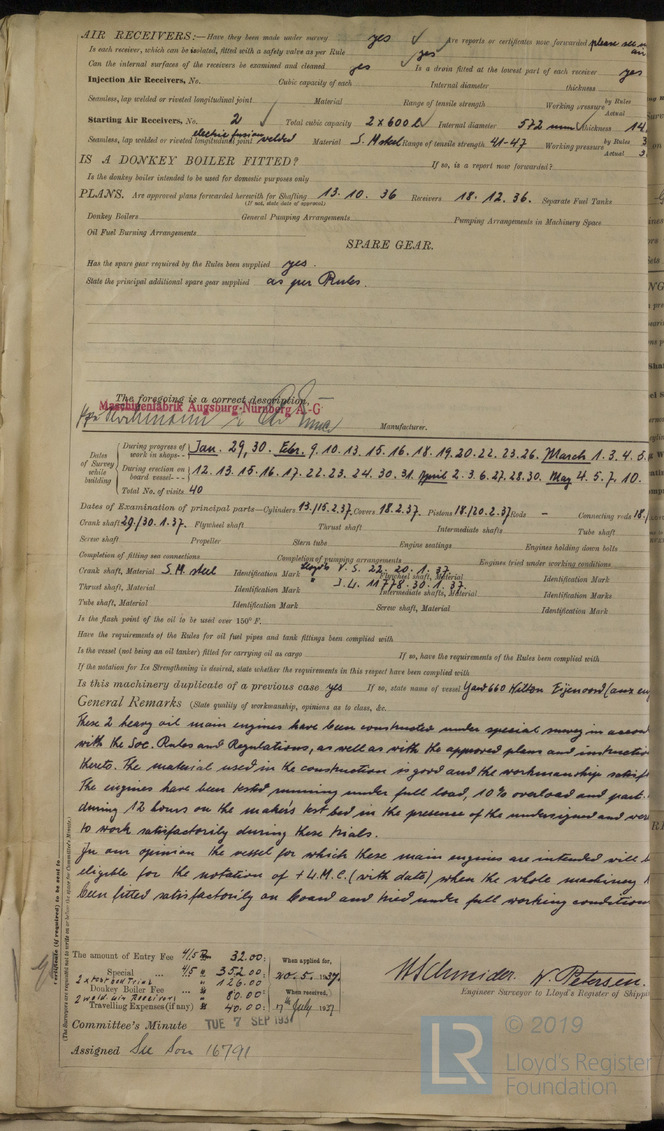 AIR RECEIVERS:—Have they been made under survey yes ✓ Are reports or certificates now forwarded please see
Is each receiver, which can be isolated, fitted with a safety valve as per Rule yes
Can the internal surfaces of the receivers be examined and cleaned yes ✓ Is a drain fitted at the lowest part of each receiver yes
Injection Air Receivers, No. Cubic capacity of each Internal diameter thickness
Seamless, lap welded or riveted longitudinal joint Material Range of tensile strength Working pressure by Rules Actual
Starting Air Receivers, No. 2 ✓ Total cubic capacity 2 x 600 L ✓ Internal diameter 572 mm thickness 14
electric fusion
Seamless, lap welded or riveted longitudinal joint welded Material S.M. steel Range of tensile strength 41-47 Working pressure by Rules 3 Actual 3
IS A DONKEY BOILER FITTED? If so, is a report now forwarded?
Is the donkey boiler intended to be used for domestic purposes only
PLANS. Are approved plans forwarded herewith for Shafting 13.10.36 Receivers 18.12.36. Separate Fuel Tanks
(If not, state date of approval)
Donkey Boilers General Pumping Arrangements Pumping Arrangements in Machinery Space
Oil Fuel Burning Arrangements
SPARE GEAR.
Has the spare gear required by the Rules been supplied yes.
State the principal additional spare gear supplied as per Rules.
The foregoing is a correct description,
Maschinenfabrik Augsburg-Nürnberg A.-G
Manufacturer.
Dates of Survey while building
During progress of work in shops-- Jan. 29, 30. Febr. 9. 10. 13. 15. 16. 18. 19. 20. 22. 23. 26. March 1. 3. 4. 5.
During erection on board vessel--- 12. 13. 15. 16. 17. 22. 23. 24. 30. 31. April 2. 3. 6. 27. 28. 30. May 4. 5. 7. 10.
Total No. of visits 40
Dates of Examination of principal parts—Cylinders 13./15.2.37. Covers 18.2.37. Pistons 18./20.2.37 Rods - Connecting rods 18./
Crank shaft 29./30.1.37. Flywheel shaft Thrust shaft Intermediate shafts Tube shaft
Screw shaft Propeller Stern tube Engine seatings Engines holding down bolts
Completion of fitting sea connections Completion of pumping arrangements Engines tried under working conditions
Crank shaft, Material S.M. steel Identification Mark Lloyd's V.S. 22. 20.1.37. Flywheel shaft, Material Identification Mark
Thrust shaft, Material Identification Mark " J.L. 11778. 30.1.37. Intermediate shafts, Material Identification Marks
Tube shaft, Material Identification Mark Screw shaft, Material Identification Mark
Is the flash point of the oil to be used over 150° F.
Have the requirements of the Rules for oil fuel pipes and tank fittings been complied with
Is the vessel (not being an oil tanker) fitted for carrying oil as cargo If so, have the requirements of the Rules been complied with
If the notation for Ice Strengthening is desired, state whether the requirements in this respect have been complied with
Is this machinery duplicate of a previous case yes If so, state name of vessel Yard 660 Wilton Fijenoord
General Remarks (State quality of workmanship, opinions as to class, &c.
These 2 heavy oil main engines have been constructed under special survey in
with the Soc. Rules and Regulations, as well as with the approved plans and
thereto. The material used in the construction is good and the workmanship
The engines have been tested running under full load, 10% overload and part.
during 12 hours on the maker's test bed in the presence of the undersigned and
to work satisfactorily during these trials.
In our opinion the vessel for which these main engines are intended will
eligible for the notation of + L.M.C. (with date) when the whole machinery
been fitted satisfactorily on board and tried under full working
The amount of Entry Fee 4/5 32.00: When applied for,
Special 4/5 " 352.00: 20.5.1937.
2 x test bed Trial " 126.00
Donkey Boiler Fee " 80.00: When received,
2 weld. air Receivers
Travelling Expenses (if any) " 40.00: 17th July 1937
W Schneider. W Petersen.
Engineer Surveyor to Lloyd's Register of
Committee's Minute TUE 7 SEP 1937
Assigned See Son 16791
© 2019
LR
Lloyd's Register
Foundation